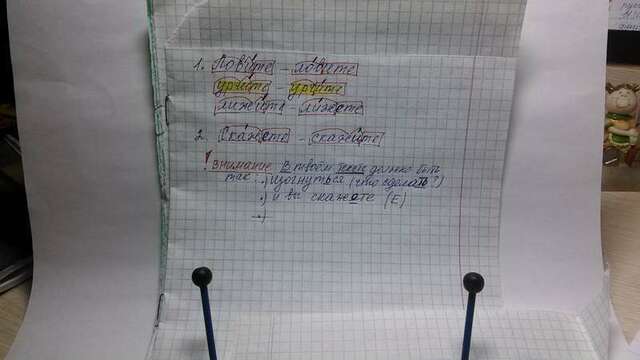 1. Ловите – ловите
урчите урчите
лижете лижете
2. Скажете – скажите
! Внимание В твоём тексте должно быть
так .) изогнуться (что сделать?)
.) и вы скажете (Е)
.)